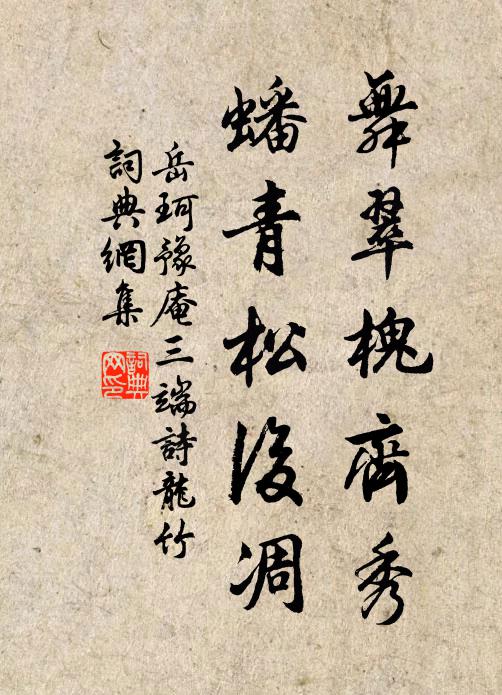 舞翠槐齊秀
蟠青松後凋
岳珂豫庵三端詩龍竹
詞典網集
詞典
网印